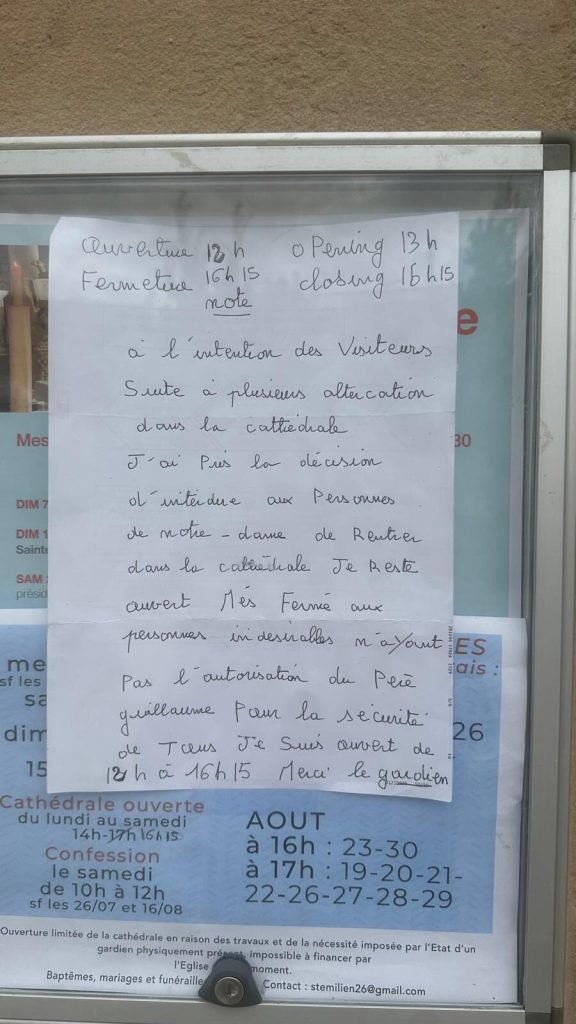 Ouverture 13 h oPening 13 h
Fermeture 16h15 closing 16h15
note
à l'intention des Visiteurs
Suite à plusieurs altercation
dans la cathédrale
J'ai Pris la décision
d'intèrdire aux Personnes
de notre-dame de Rentrer
dans la cathédrale Je Reste
ouvert Més Fermé aux
personnes indesirables n'ayant
Pas l'autorisation du Père
guillaume Pour la sécurité
de Tous Je Suis ouvert de
13h à 16h15 Merci le gardien
Mes
30
DIM 7
DIM 1
Sainte
SAM
présid
ES
ais :
me
sf les
sa
dim
15
26
Cathédrale ouverte
du lundi au samedi
14h-17h 16h15
Confession
le samedi
de 10h à 12h
sf les 26/07 et 16/08
AOUT
à 16h : 23-30
à 17h : 19-20-21-
22-26-27-28-29
Ouverture limitée de la cathédrale en raison des travaux et de la nécessité imposée par l'Etat d'un
gardien physiquement présent, impossible à financer par
l'Eglise moment.
Baptêmes, mariages et funéraille Contact : stemilien26@gmail.com